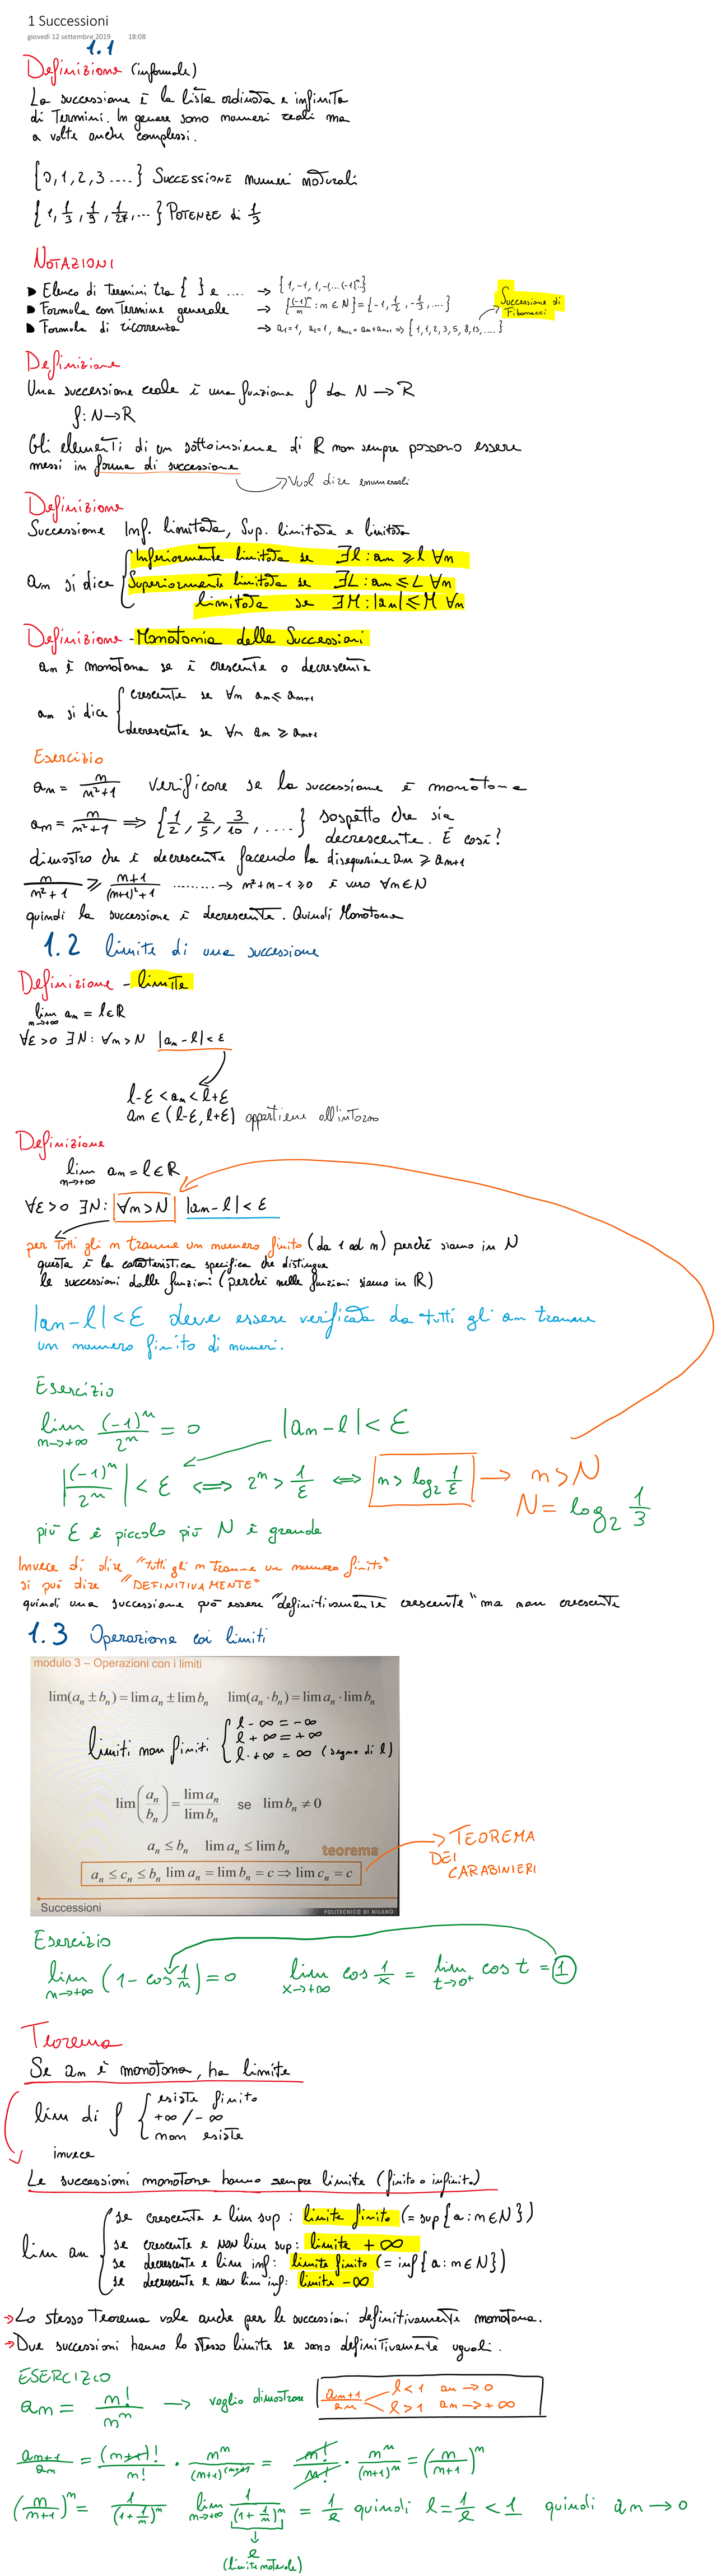 1 Successioni
giovedì 12 settembre 2019 18:08
1.1
Definizione (informale)
La successione è la lista ordinata e infinita
di Termini. In genere sono numeri reali ma
a volte anche complessi.
{0, 1, 2, 3 ....} SUCCESSIONE numeri naturali
{1, 1/3, 1/9, 1/27, ...} POTENZE di 1/3
NOTAZIONI
Elenco di Termini tra { } e .... → {1, -1, 1, -1, ... (-1)^n ..}
Formula con Termine generale → {(-1)^n/n : n ∈ N} = {-1, 1/2, -1/3, ....}
Formula di ricorrenza → a1=1, a2=1, an+2 = an+an+1 ⇒ {1, 1, 2, 3, 5, 8, 13, ....}
Successione di
Fibonacci
Definizione
Una successione reale è una funzione f da N → R
f: N → R
Gli elementi di un sottoinsieme di R non sempre possono essere
messi in forma di successione
→ Vuol dire enumerarli
Definizione
Successione Inf. limitata, Sup. limitata e limitata
an si dice { Inferiormente limitata se ∃l : an ≥ l ∀n
Superiormente limitata se ∃L : an ≤ L ∀n
limitata se ∃M : |an| ≤ M ∀n
Definizione - Monotonia delle Successioni
an è monotona se è crescente o decrescente
an si dice { crescente se ∀n an ≤ an+1
decrescente se ∀n an ≥ an+1
Esercizio
an = n/(n²+1) verificare se la successione è monotona
an = n/(n²+1) ⇒ {1/2, 2/5, 3/10, ....} sospetto che sia
decrescente. È così?
dimostro che è decrescente facendo la disequazione an ≥ an+1
n/(n²+1) ≥ (n+1)/((n+1)²+1) ......... → n²+n-1 ≥ 0 è vero ∀n ∈ N
quindi la successione è decrescente. Quindi Monotona
1.2 limite di una successione
Definizione - limite
lim n→+∞ an = l ∈ R
∀ε>0 ∃N : ∀n>N |an-l| < ε
l-ε < an < l+ε
an ∈ (l-ε, l+ε) appartiene all'intorno
Definizione
lim n→+∞ an = l ∈ R
∀ε>0 ∃N : ∀n>N |an-l| < ε
per Tutti gli n tranne un numero finito (da 1 ad n) perché siamo in N
questa è la caratteristica specifica che distingue
le successioni dalle funzioni (perché nelle funzioni siamo in R)
|an-l| < ε deve essere verificata da tutti gli an tranne
un numero finito di numeri.
Esercizio
lim n→+∞ (-1)^n/2^n = 0 |an-l| < ε
|(-1)^n/2^n| < ε ⟺ 2^n > 1/ε ⟺ n > log2 1/ε → n > N
N = log2 1/3
più ε è piccolo più N è grande
Invece di dire "tutti gli n tranne un numero finito"
si può dire "DEFINITIVAMENTE"
quindi una successione può essere "definitivamente crescente" ma non crescente
1.3 Operazione coi limiti
modulo 3 – Operazioni con i limiti
lim(an ± bn) = lim an ± lim bn lim(an · bn) = lim an · lim bn
limiti non finiti { l - ∞ = -∞
l + ∞ = +∞
l · +∞ = ∞ (segno di l)
lim(an/bn) = lim an/lim bn se lim bn ≠ 0
an ≤ bn lim an ≤ lim bn
teorema
an ≤ cn ≤ bn lim an = lim bn = c ⇒ lim cn = c
→ TEOREMA
DEI
CARABINIERI
Successioni
POLITECNICO DI MILANO
Esercizio
lim n→+∞ (1 - cos 1/n) = 0 lim x→+∞ cos 1/x = lim t→0+ cos t = 1
Teorema
Se an è monotona, ha limite
lim di f { esiste finito
+∞ / -∞
non esiste
invece
Le successioni monotone hanno sempre limite (finito o infinito)
lim an { se crescente e lim sup : limite finito (= sup{a : n ∈ N})
se crescente e NON lim sup: limite +∞
se decrescente e lim inf: limite finito (= inf{a : n ∈ N})
se decrescente e NON lim inf: limite -∞
→ Lo stesso Teorema vale anche per le successioni definitivamente monotona.
→ Due successioni hanno lo stesso limite se sono definitivamente uguali.
ESERCIZIO
an = n!/n^n → voglio dimostrare an+1/an l<1 an → 0
l>1 an → +∞
an+1/an = (n+1)!/n! · n^n/(n+1)^(n+1) = n!/n! · n^n/(n+1)^n = (n/(n+1))^n
(n/(n+1))^n = 1/(1+1/n)^n lim n→+∞ 1/(1+1/n)^n = 1/e quindi l = 1/e < 1 quindi an → 0
e
(limite notevole)